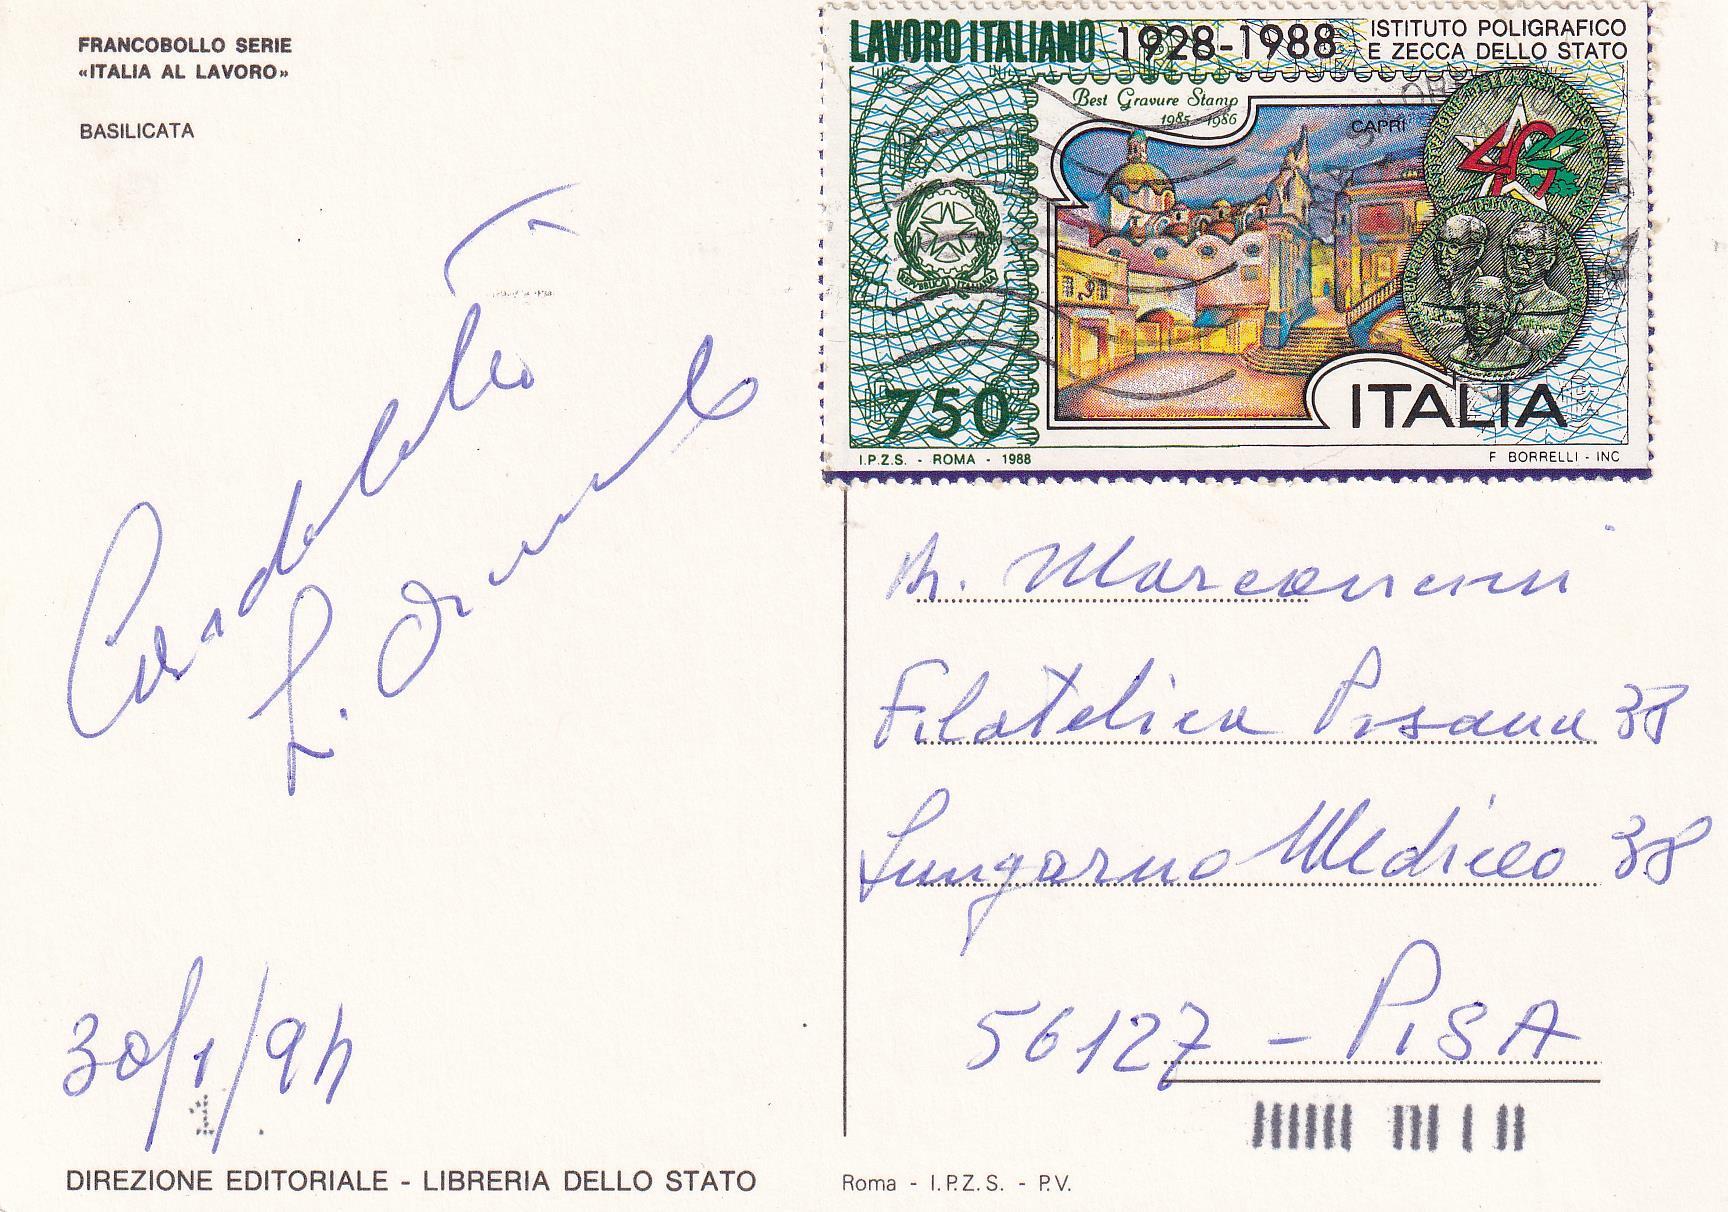 FRANCOBOLLO SERIE
«ITALIA AL LAVORO»
BASILICATA
LAVORO ITALIANO 1928-1988
ISTITUTO POLIGRAFICO
E ZECCA DELLO STATO
Best Gravure Stamp
1985 1986
CAPRI
750
ITALIA
I.P.Z.S. - ROMA - 1988
F BORRELLI - INC
Filatelica Pisana 38
Lungarno Mediceo 38
56127 - PISA
30/1/94
DIREZIONE EDITORIALE - LIBRERIA DELLO STATO
Roma - I.P.Z.S. - P.V.